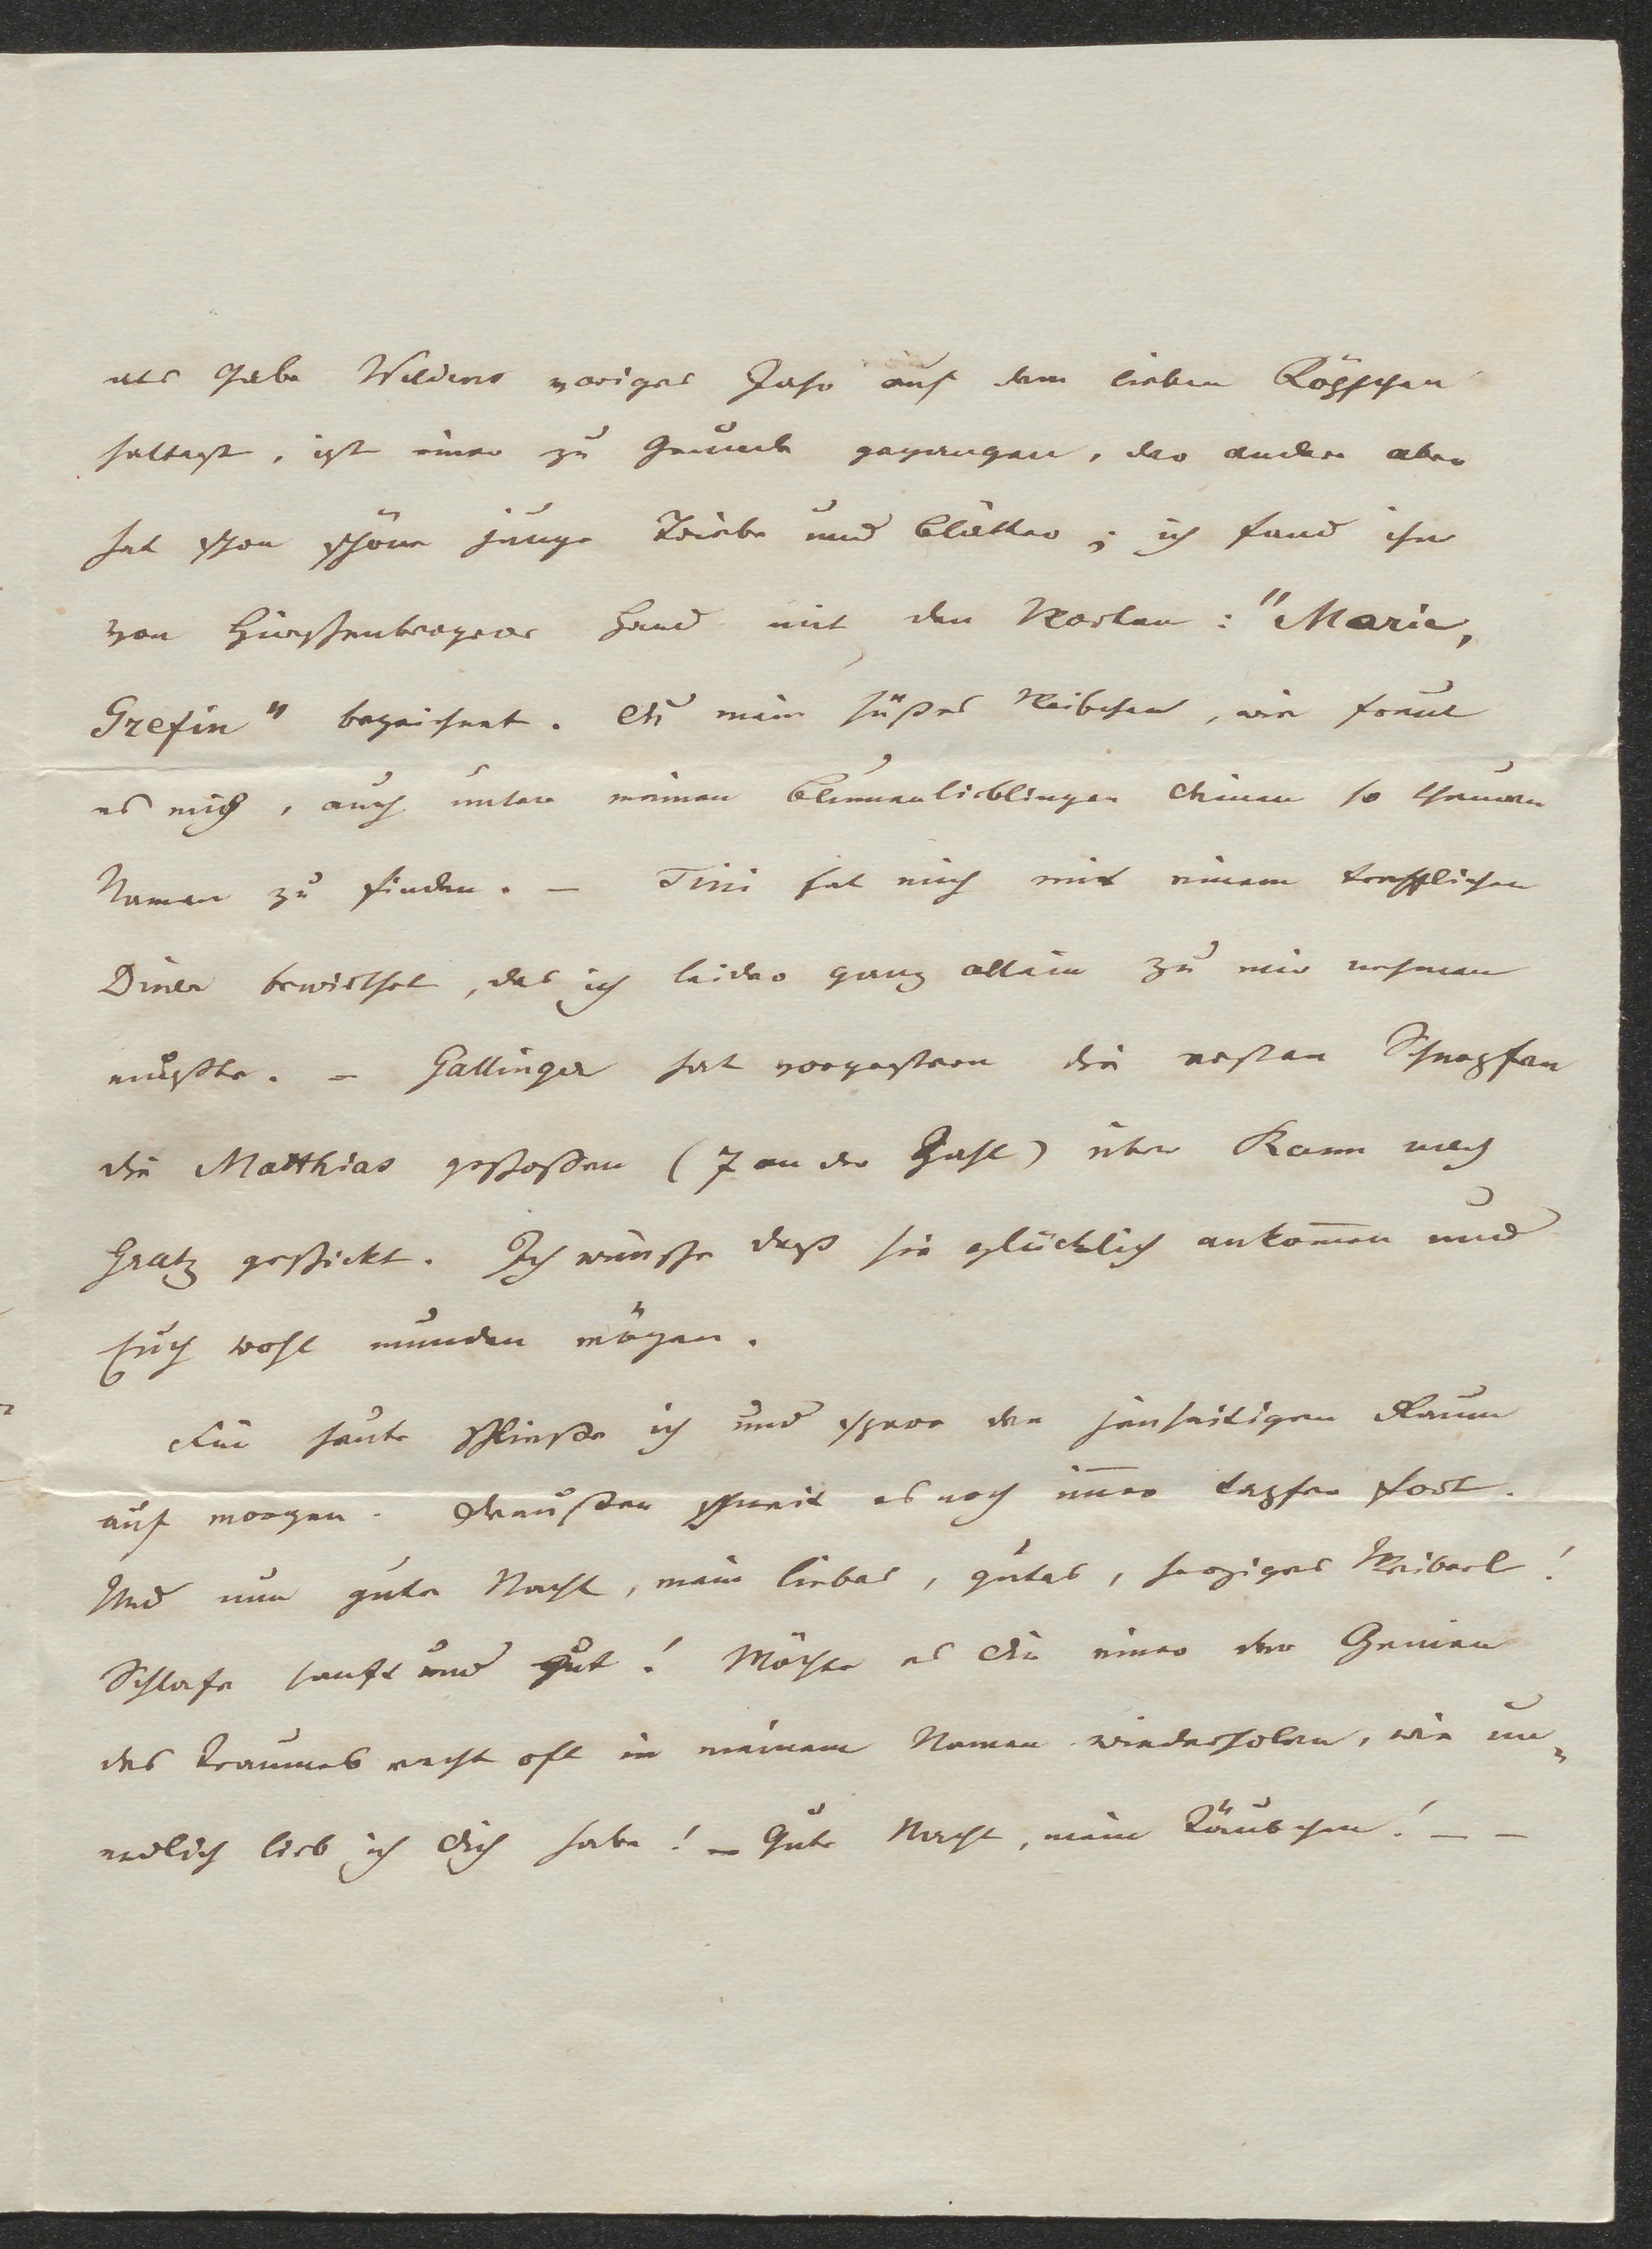 als Gabe Weldens voriges Jahr auf dem lieben Köpfchen
hattest, ist einer zu Grunde gegangen, der andere aber
hat schon schöne junge Triebe und Blätter; ich fand ihn
von Hirschenbergers Hand mit den Worten: "Marie,
Grefin" bezeichnet. Du mein süßes Weibchen, wie freut
es mich, auch unter meinen Blumenlieblingen Deinen so theuern
Namen zu finden. – Tini hat mich mit einem trefflichen
Diner bewirthet, das ich leider ganz allein zu mir nehmen
mußte. – Gallinger hat vorgestern die ersten Schnepfen
die Matthias geschoßen (7 an der Zahl) über Rann nach
Gratz geschickt. Ich wünsche daß sie glücklich ankom̅en und
Euch wohl munden mögen.
Für heute schließe ich und spare den jenseitigen Raum
auf morgen. Draußen schneit es noch im̅er tapfer fort.
Und nun gute Nacht, mein liebes, gutes, herziges Weiberl!
Schlafe sanft und gut! Möchte es Dir einer der Genien
des Traumes recht oft in meinem Namen wiederholen, wie un-
endlich lieb ich Dich habe! – Gute Nacht, mein Täubchen! – –